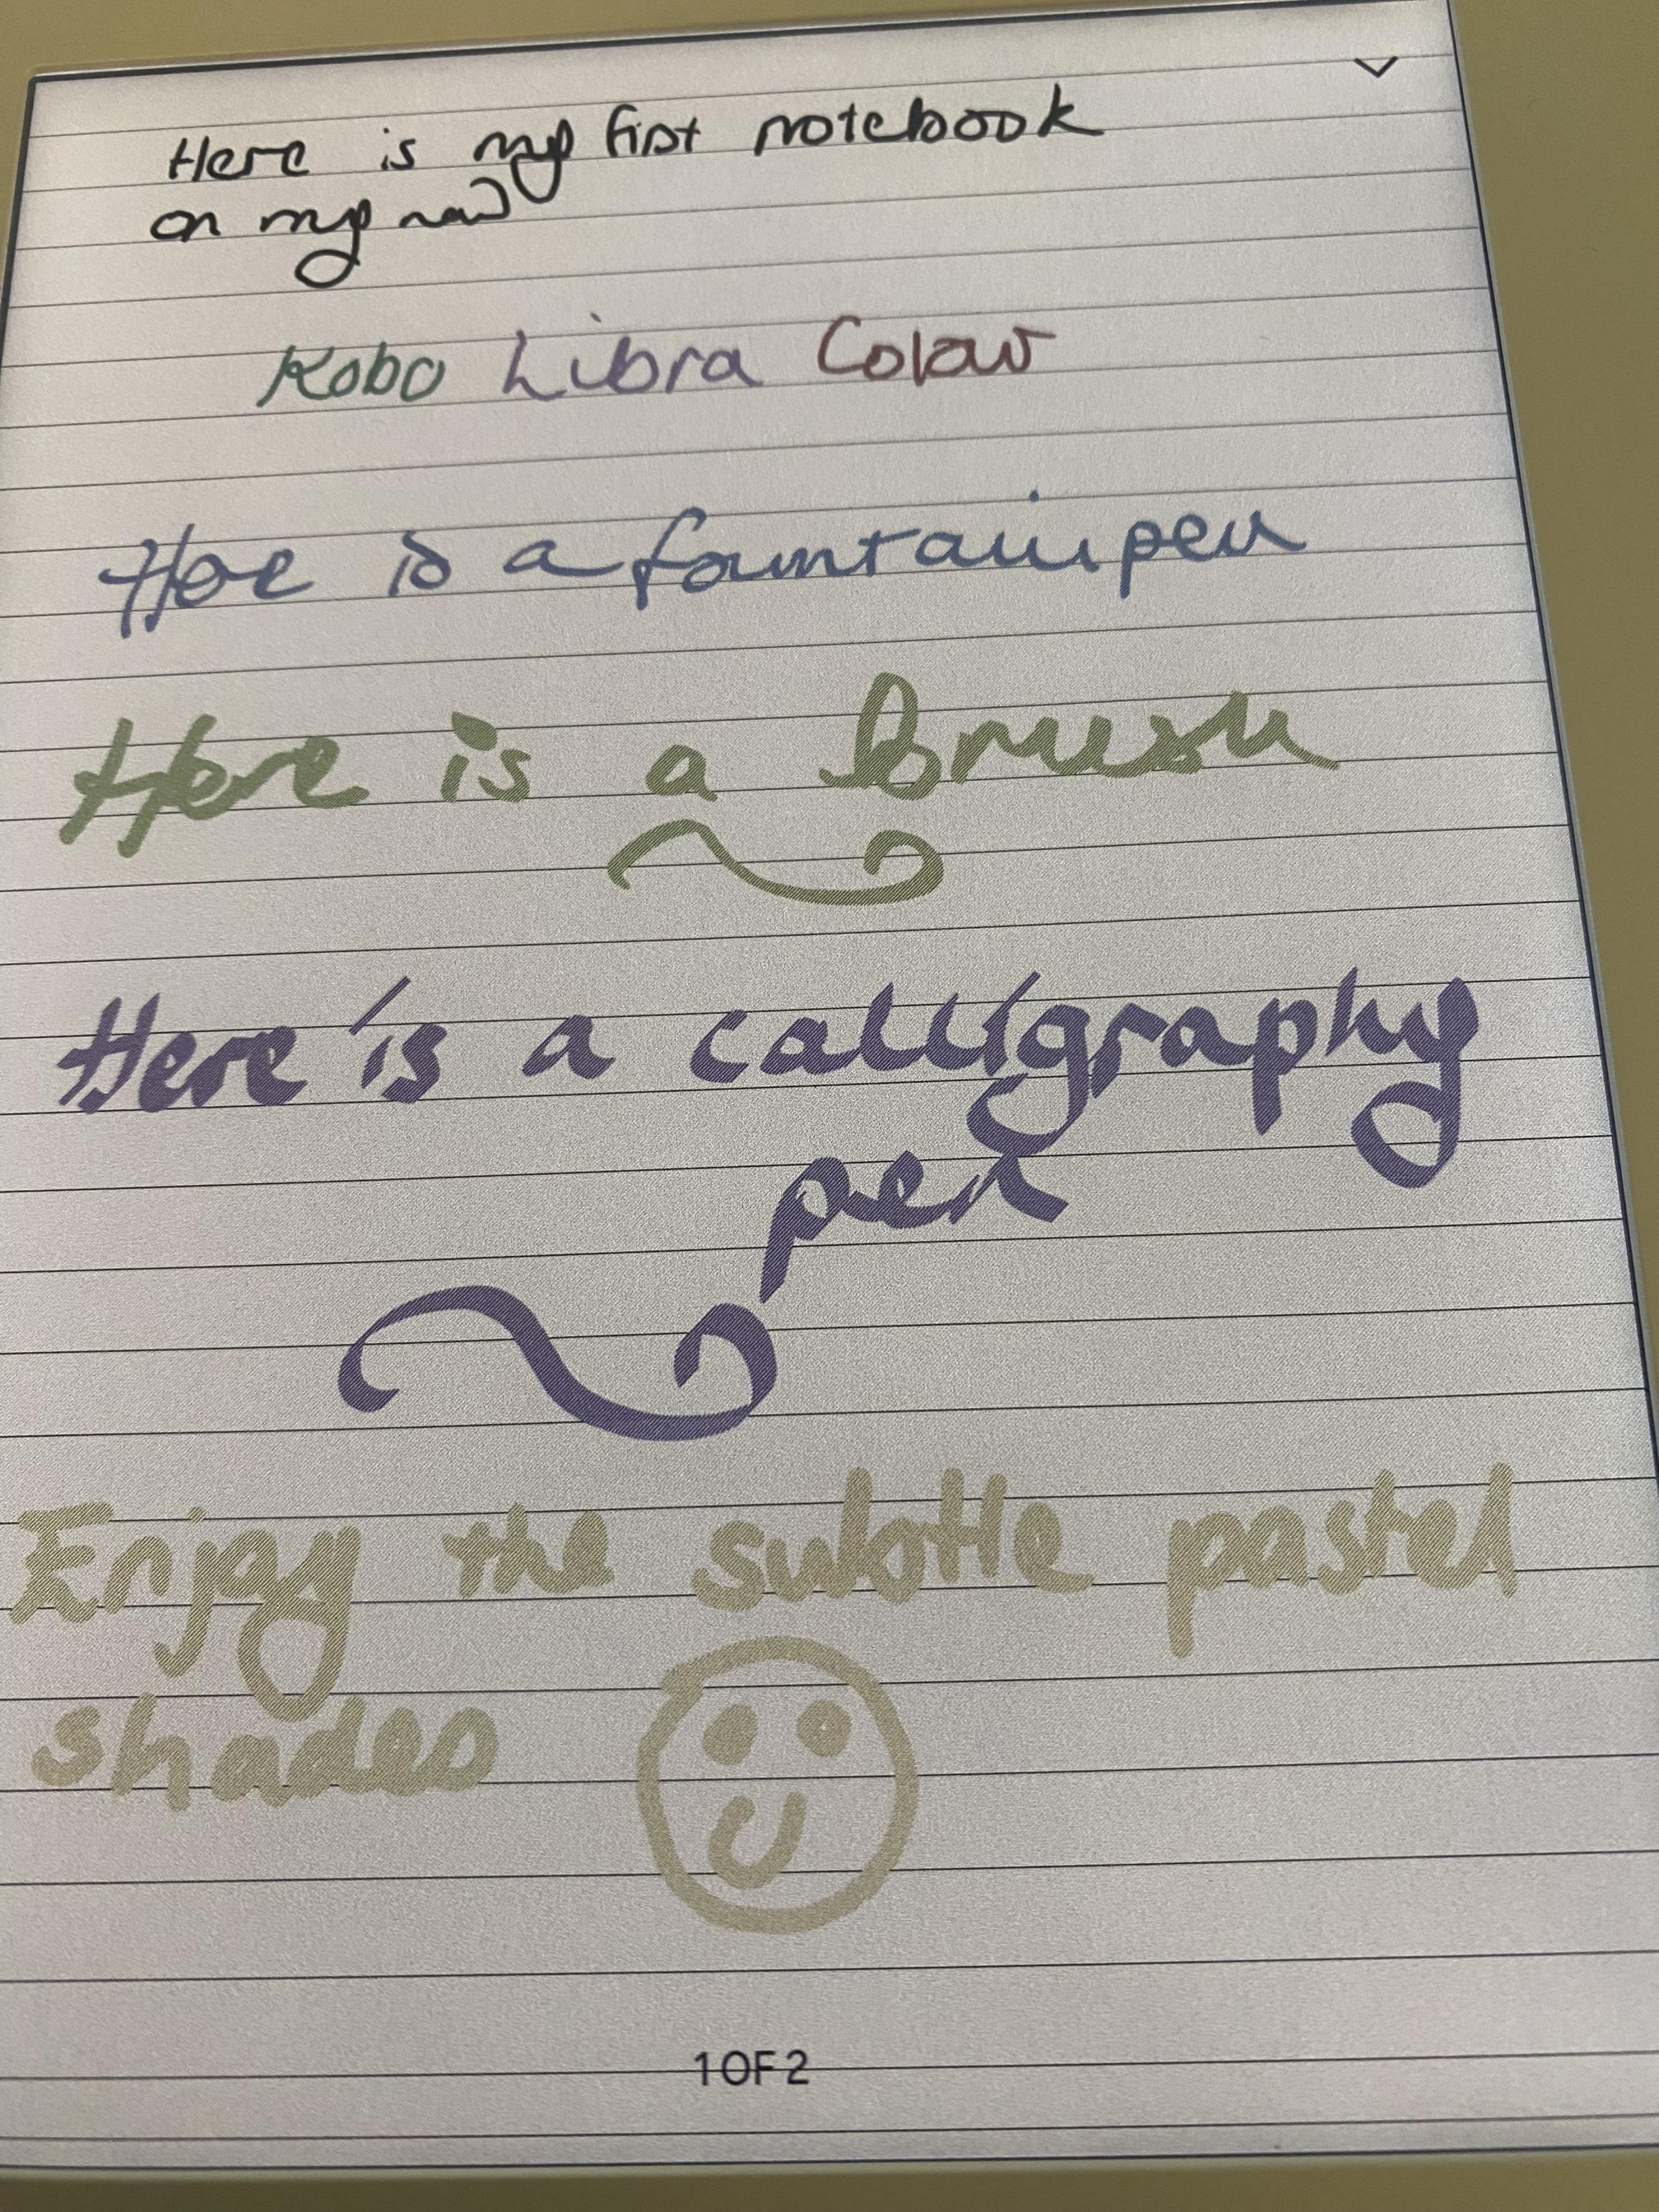 Here is my first notebook
on my new
Kobo Libra Colour
Here is a fountain pen
Here is a brush
Here is a calligraphy
pen
Enjoy the subtle pastel
shades
1 OF 2